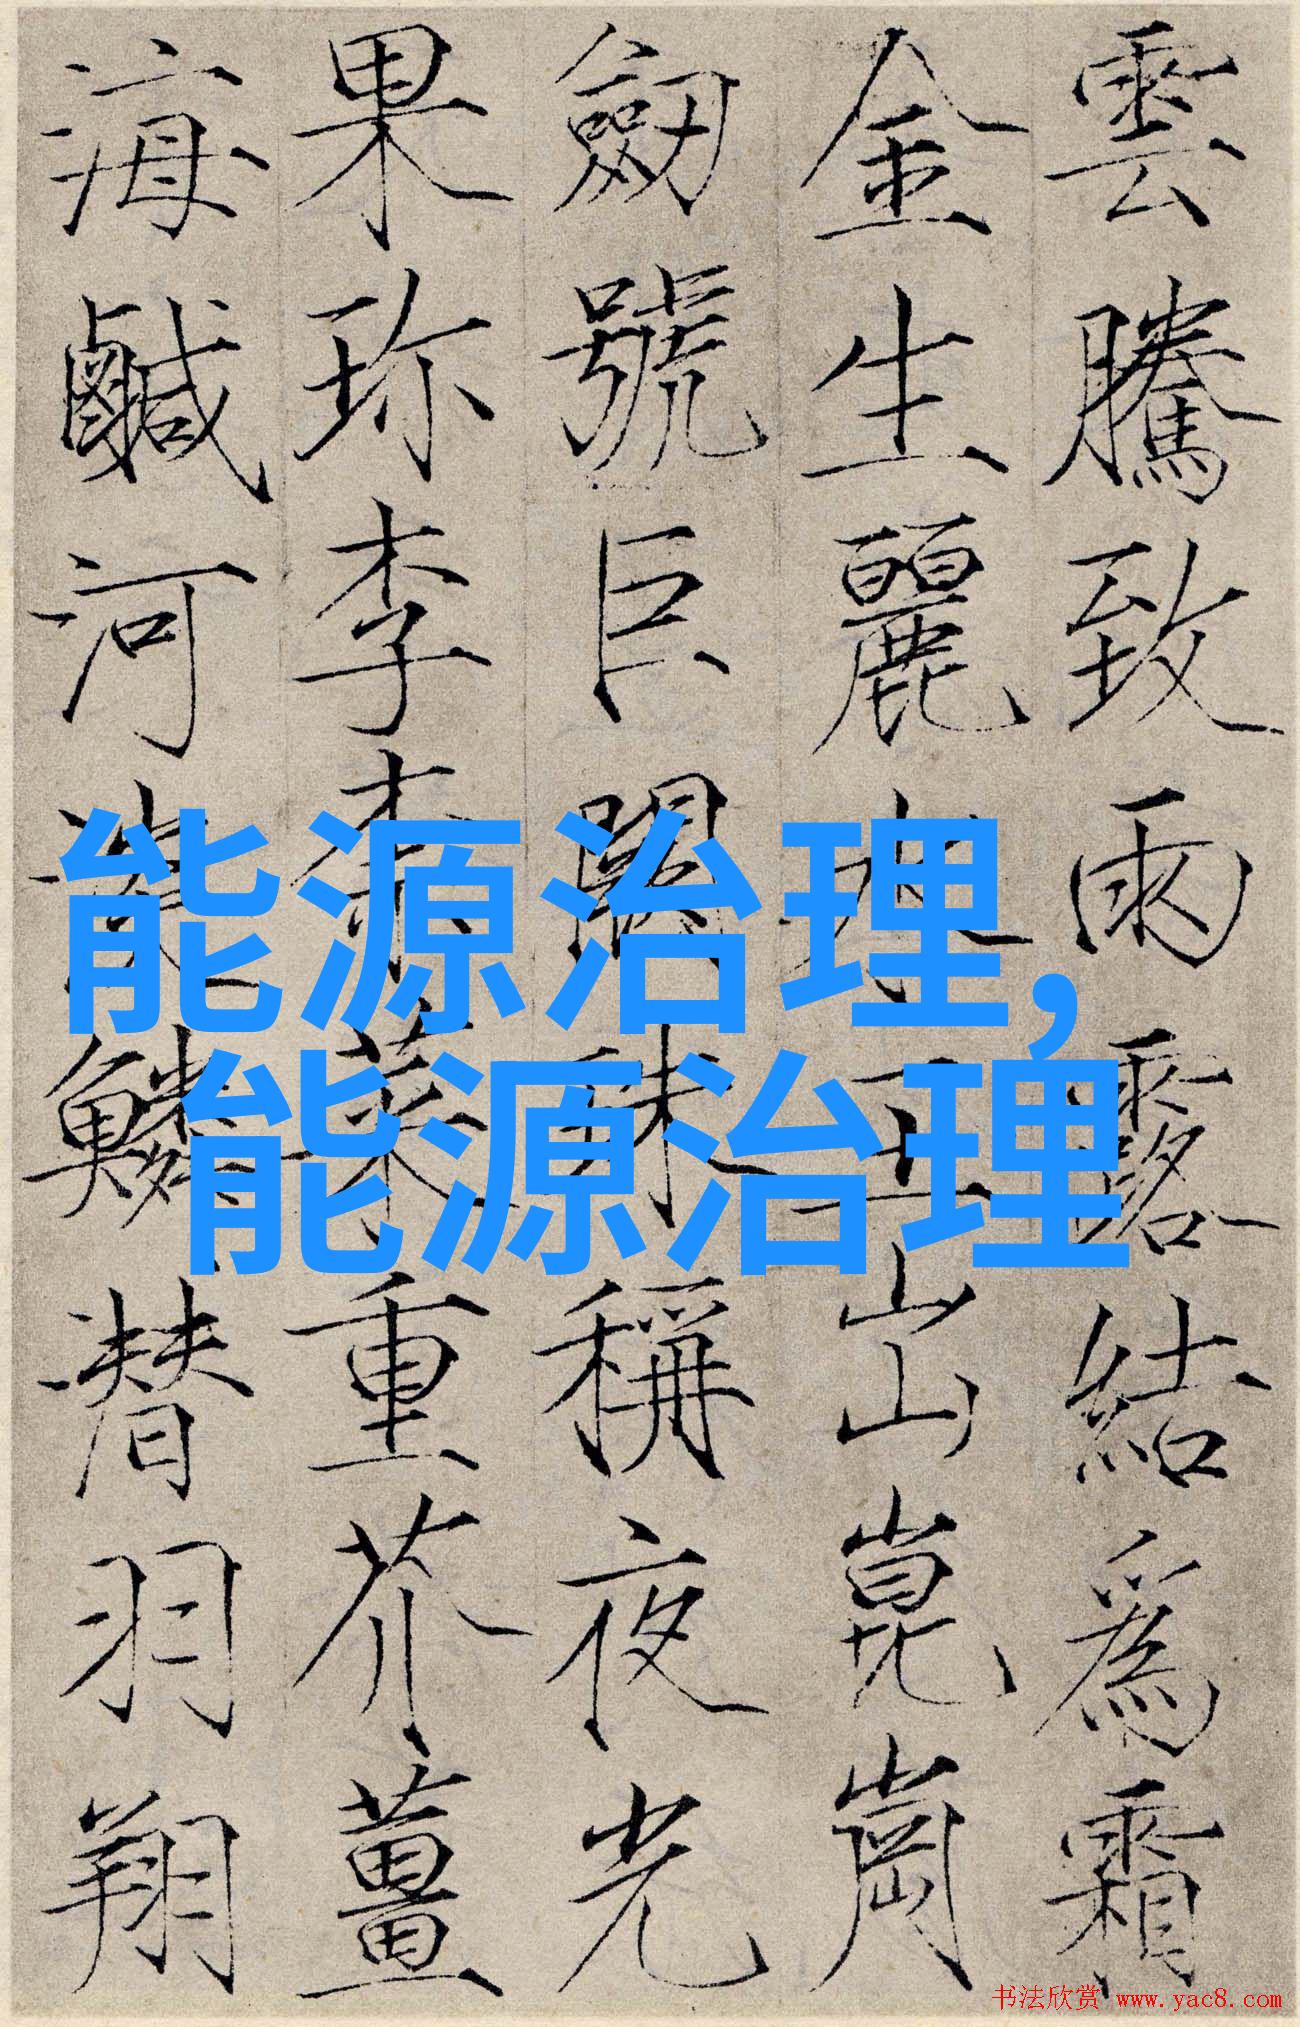 雲騰致雨露結爲霜
金生麗水玉出崑崗
劒號巨闕珠稱夜光
果珎李柰菜重芥薑
海鹹河淡鱗潜羽翔
能源治理,
能源治理
书法欣赏 www.yac8.com